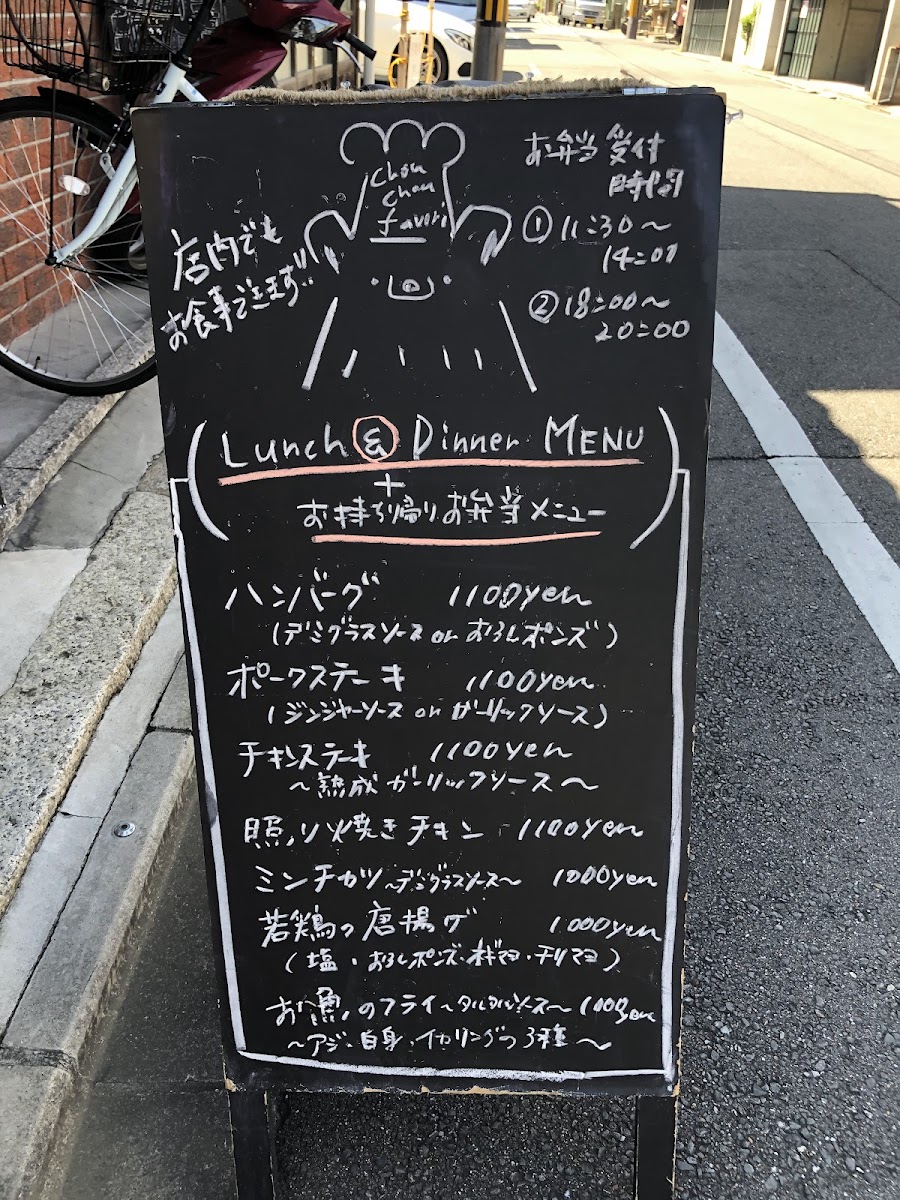 chou
chou
favori
店内でも
お食事できます!!
お弁当受付
時間
① 11:30〜
14:00
② 18:00〜
20:00
Lunch & Dinner MENU
+
お持ち帰りお弁当メニュー
ハンバーグ 1100yen
(デミグラスソース or おろしポンズ)
ポークステーキ 1100yen
(ジンジャーソース or ガーリックソース)
チキンステーキ 1100yen
〜熟成ガーリックソース〜
照り焼きチキン 1100yen
ミンチカツ〜デミグラスソース〜 1000yen
若鶏の唐揚げ 1000yen
(塩・おろしポンズ・ネギマヨ・チリマヨ)
お魚のフライ〜タルタルソース〜 1000yen
〜アジ・白身・イカリングの3種〜